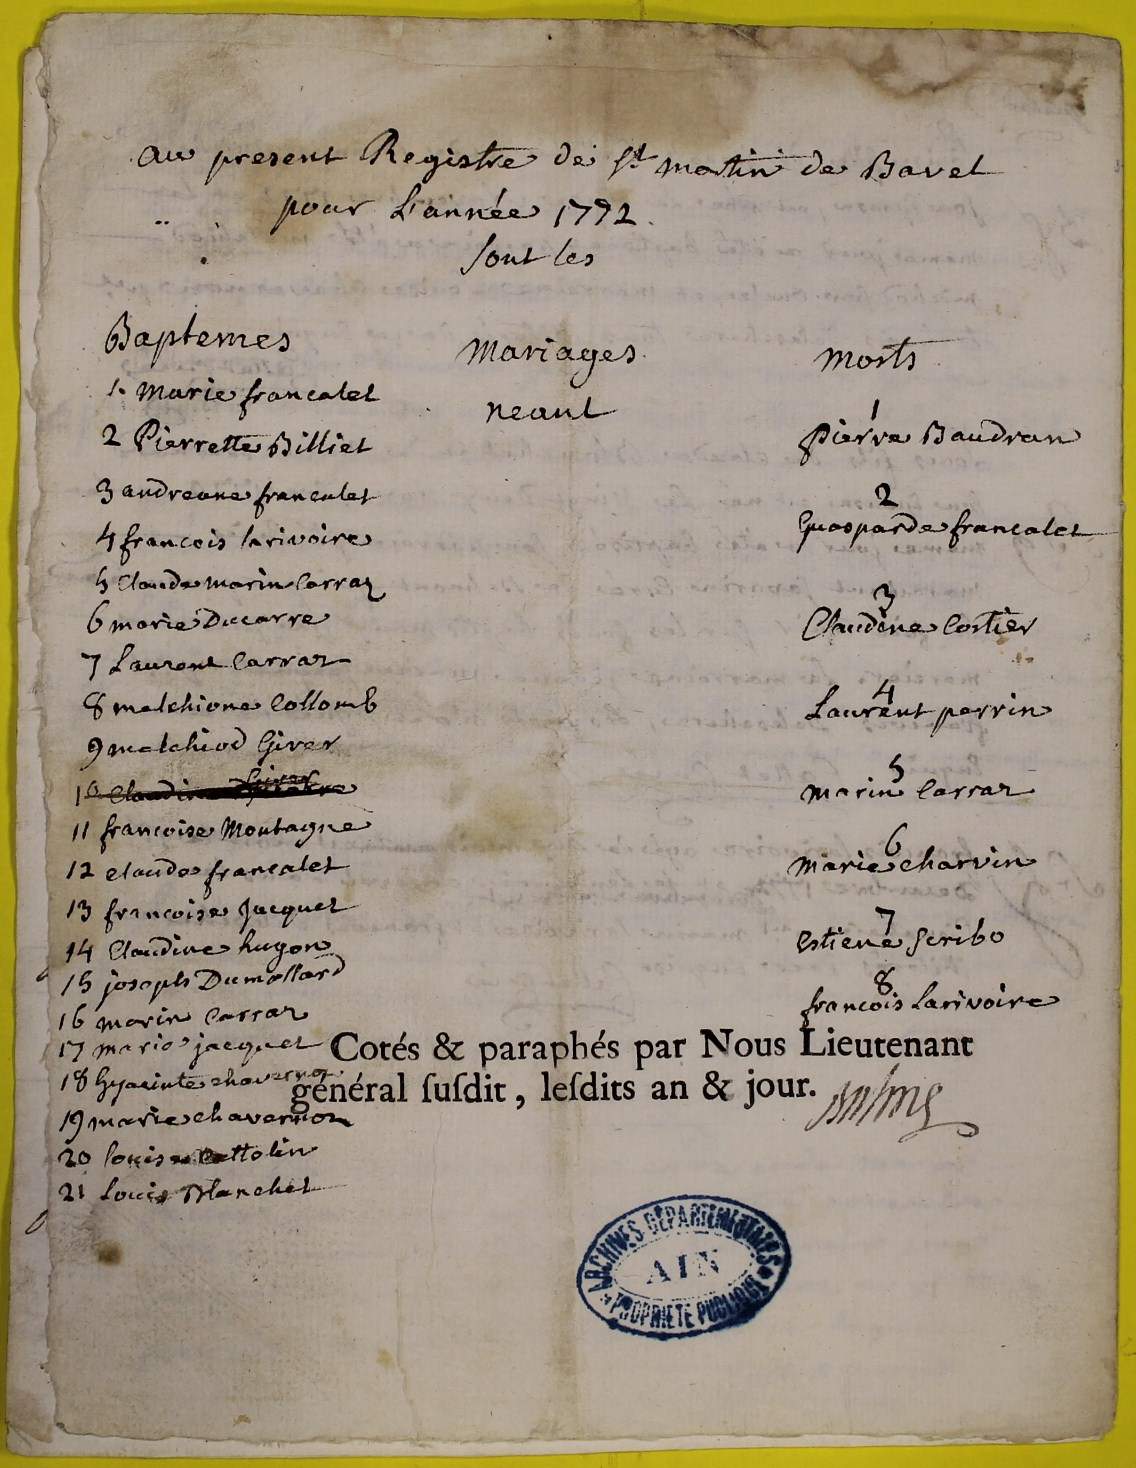 au present Registre de St martin de Bavel
pour L'année 1772
sont les
Baptemes
1 Marie francalet
2 Pierrette Billiet
3 andreane francalet
4 francois larivoire
5 Claude marin Carraz
6 marie Ducarre
7 Laurent Carraz
8 melchione Collomb
9 melchiod Girer
10 Claudine
11 francoise Montagne
12 claude francalet
13 francoise Jacquet
14 Claudine hugon
15 joseph Dumollard
16 marin Carraz
17 marie jacquet
18 hyacinte chavernoz
19 marie chavernoz
20 louise
21 Louis Blanchet
mariages
neant
morts
1
pierre Baudran
2
Guasparde francalet
3
Claudine Costier
4
Laurent perrin
5
marin Carraz
6
marie charvin
7
estiene Scribo
8
francois Larivoire
Cotés & paraphés par Nous Lieutenant
général suſdit, leſdits an & jour.
ARCHIVES DÉPARTEMENTALES
AIN
PROPRIÉTÉ PUBLIQUE